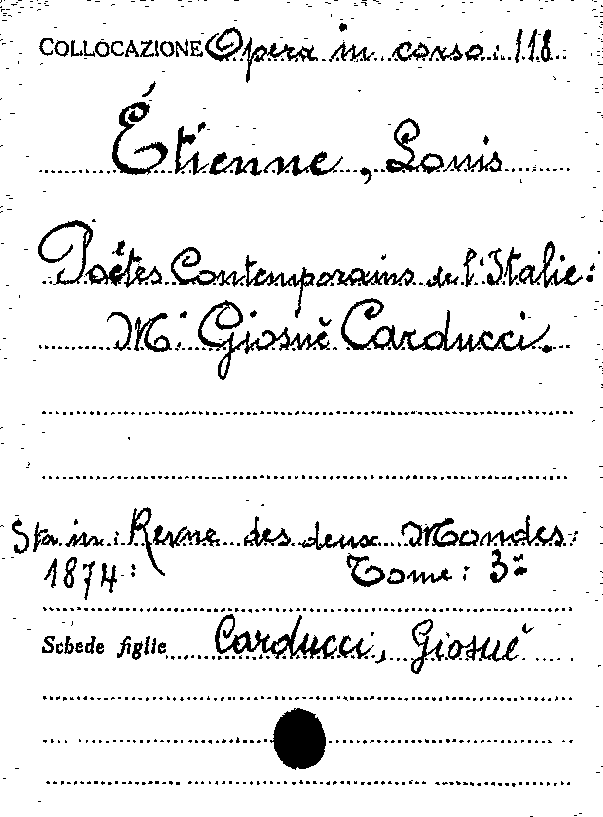 COLLOCAZIONE Opera in corso: 118
Étienne, Louis
Poêtes Contemporains de l'Italie:
M.r Giosuè Carducci.
Sta in: Revue des deux Mondes:
1874: Tome: 3º
Schede figlie Carducci, Giosuè